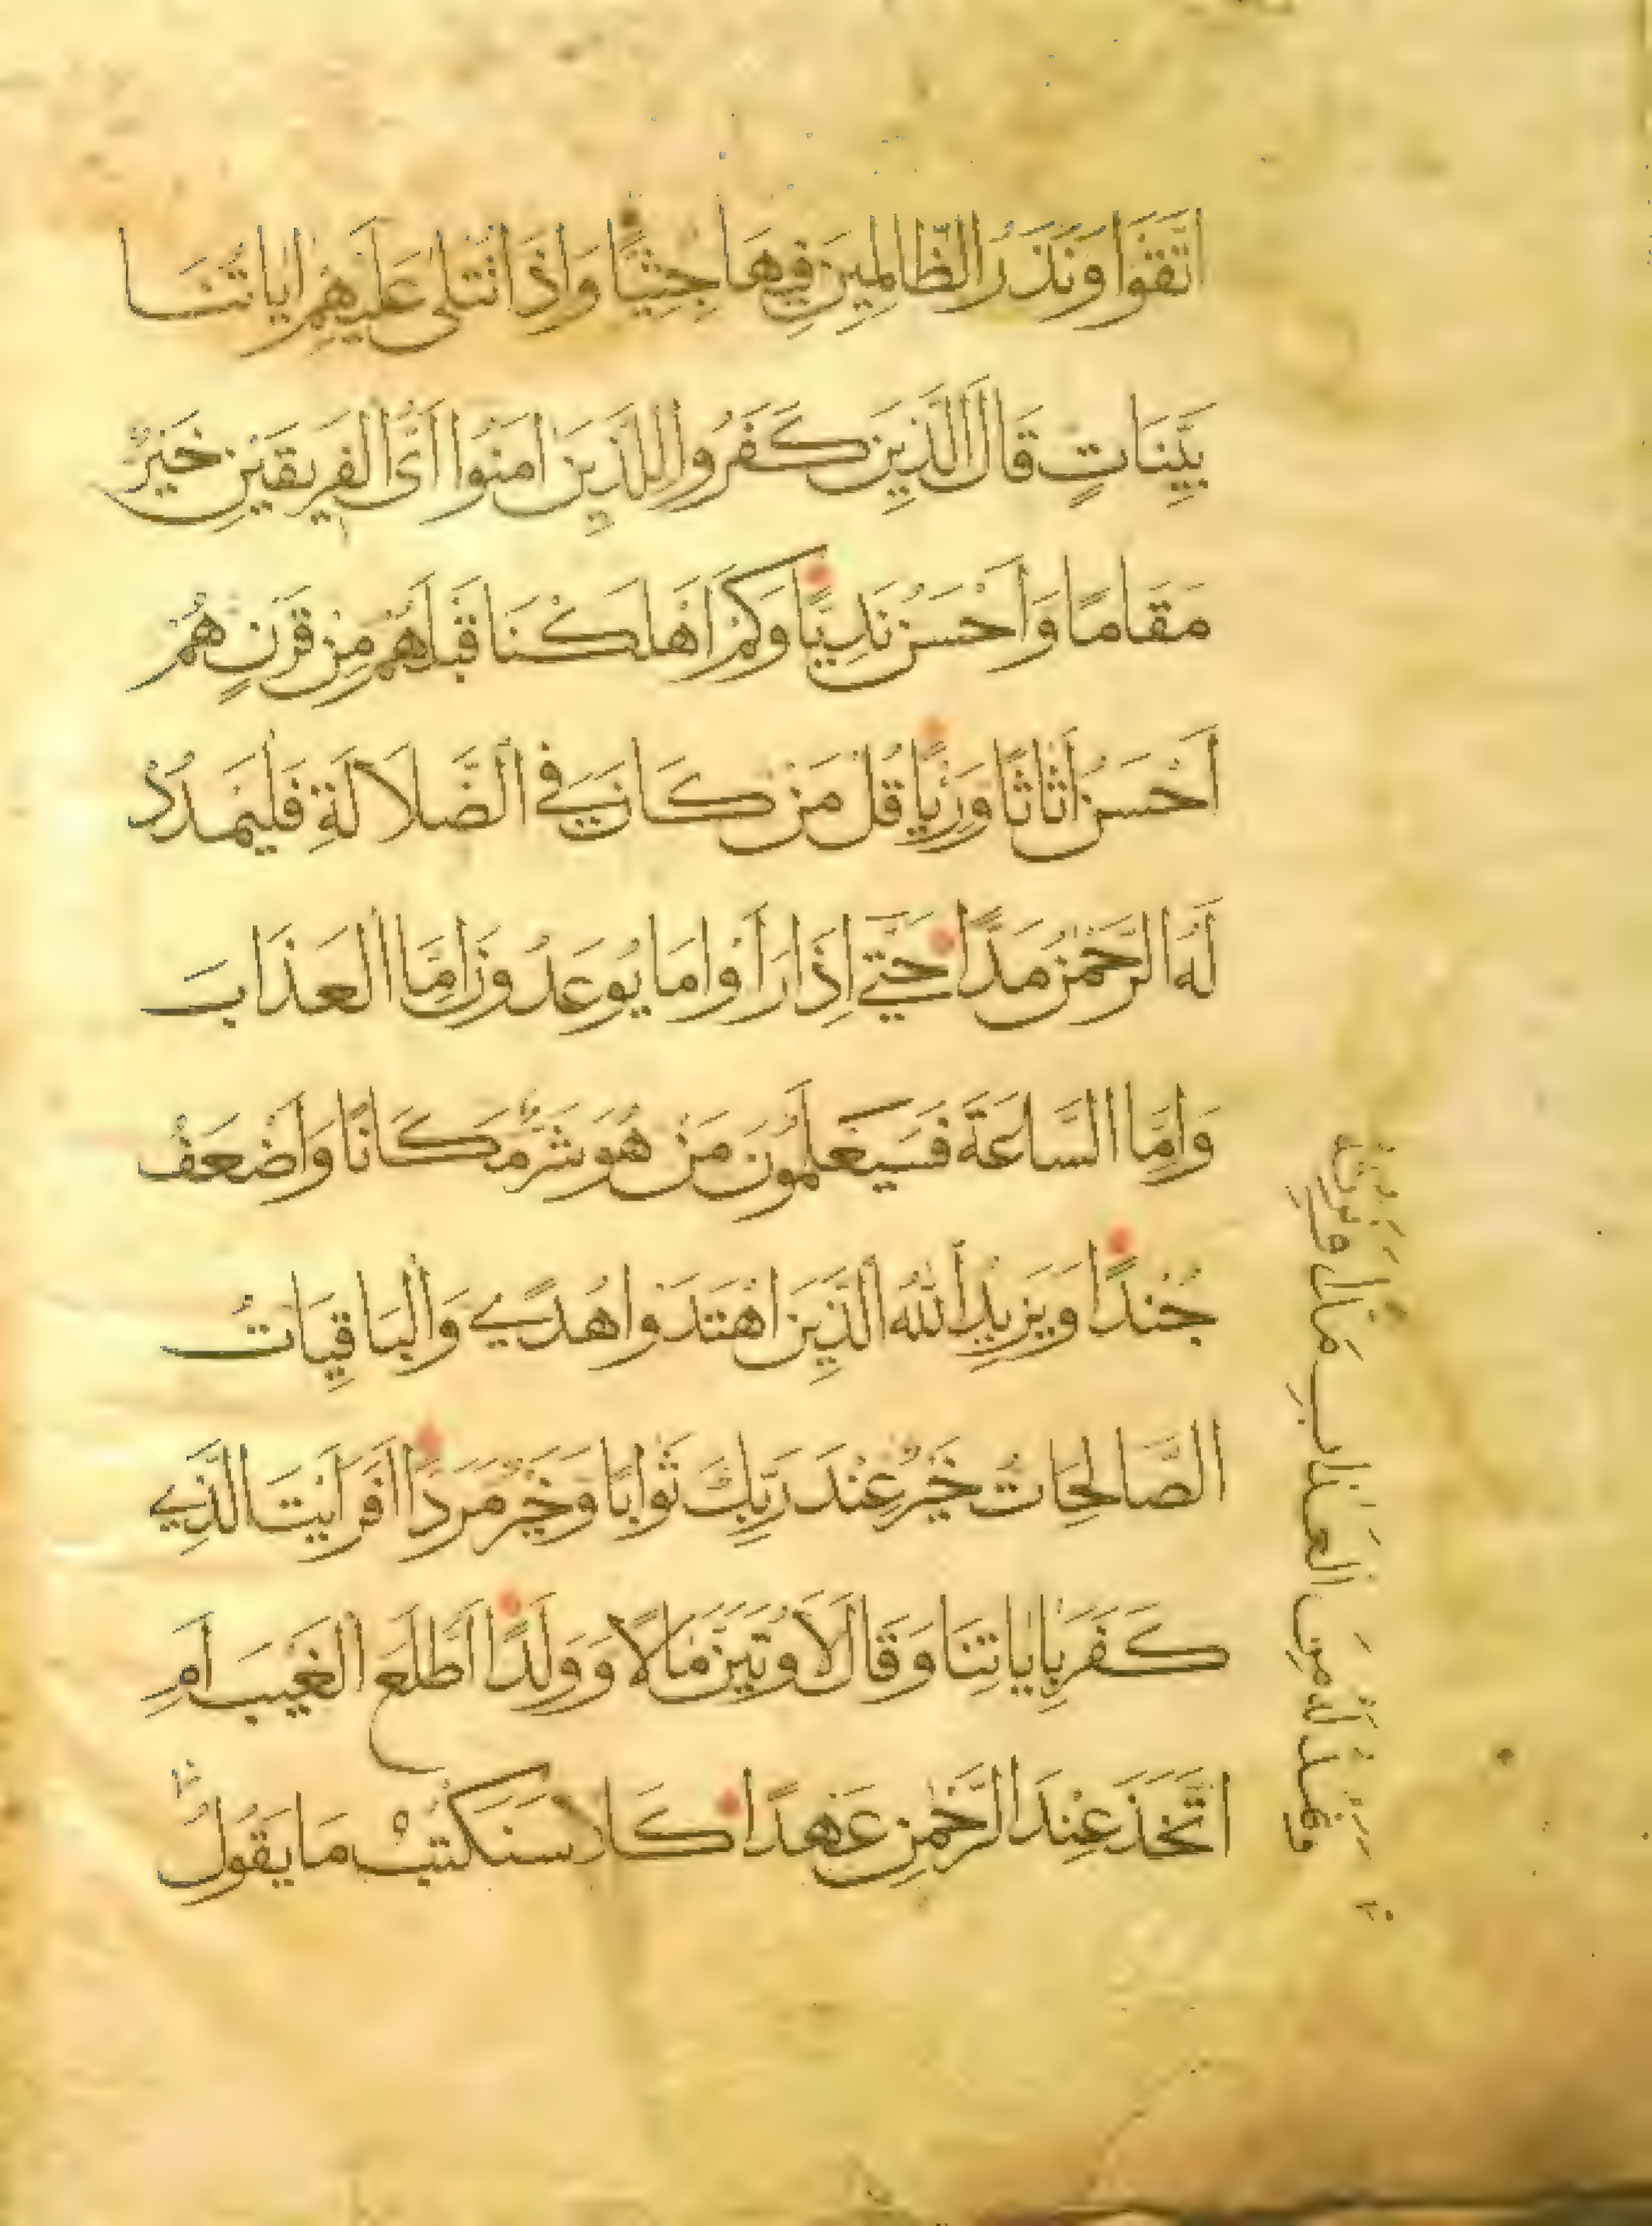 اتَّقَوْا وَنَذَرُ الظَّالِمِينَ فِيهَا جِثِيًّا وَاِذَا تُتْلَى عَلَيْهِمْ اٰيَاتُنَا
بَيِّنَاتٍ قَالَ الَّذِينَ كَفَرُوا لِلَّذِينَ اٰمَنُوا اَىُّ الْفَرِيقَيْنِ خَيْرٌ
مَقَامًا وَاَحْسَنُ نَدِيًّا وَكَمْ اَهْلَكْنَا قَبْلَهُمْ مِنْ قَرْنٍ هُمْ
اَحْسَنُ اَثَاثًا وَرِئْيًا قُلْ مَنْ كَانَ فِي الضَّلَالَةِ فَلْيَمْدُدْ
لَهُ الرَّحْمٰنُ مَدًّا حَتّٰي اِذَا رَاَوْا مَا يُوعَدُونَ اِمَّا الْعَذَابَ
وَاِمَّا السَّاعَةَ فَسَيَعْلَمُونَ مَنْ هُوَ شَرٌّ مَكَانًا وَاَضْعَفُ
جُنْدًا وَيَزِيدُ اللّٰهُ الَّذِينَ اهْتَدَوْا هُدًي وَالْبَاقِيَاتُ
الصَّالِحَاتُ خَيْرٌ عِنْدَ رَبِّكَ ثَوَابًا وَخَيْرٌ مَرَدًّا اَفَرَاَيْتَ الَّذِي
كَفَرَ بِاٰيَاتِنَا وَقَالَ لَاُوتَيَنَّ مَالًا وَوَلَدًا اَطَّلَعَ الْغَيْبَ اَمِ
اتَّخَذَ عِنْدَ الرَّحْمٰنِ عَهْدًا كَلَّا سَنَكْتُبُ مَا يَقُولُ
وَنَمُدُّ لَهُ مِنَ الْعَذَابِ مَدًّا وَنَرِثُهُ